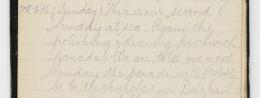 28-5-16 (Sunday) This is our second
Sunday at sea. Again the
polishing & cleaning for church
parade. We are told on next
Sunday the parade will probably
be to the churches in Durban